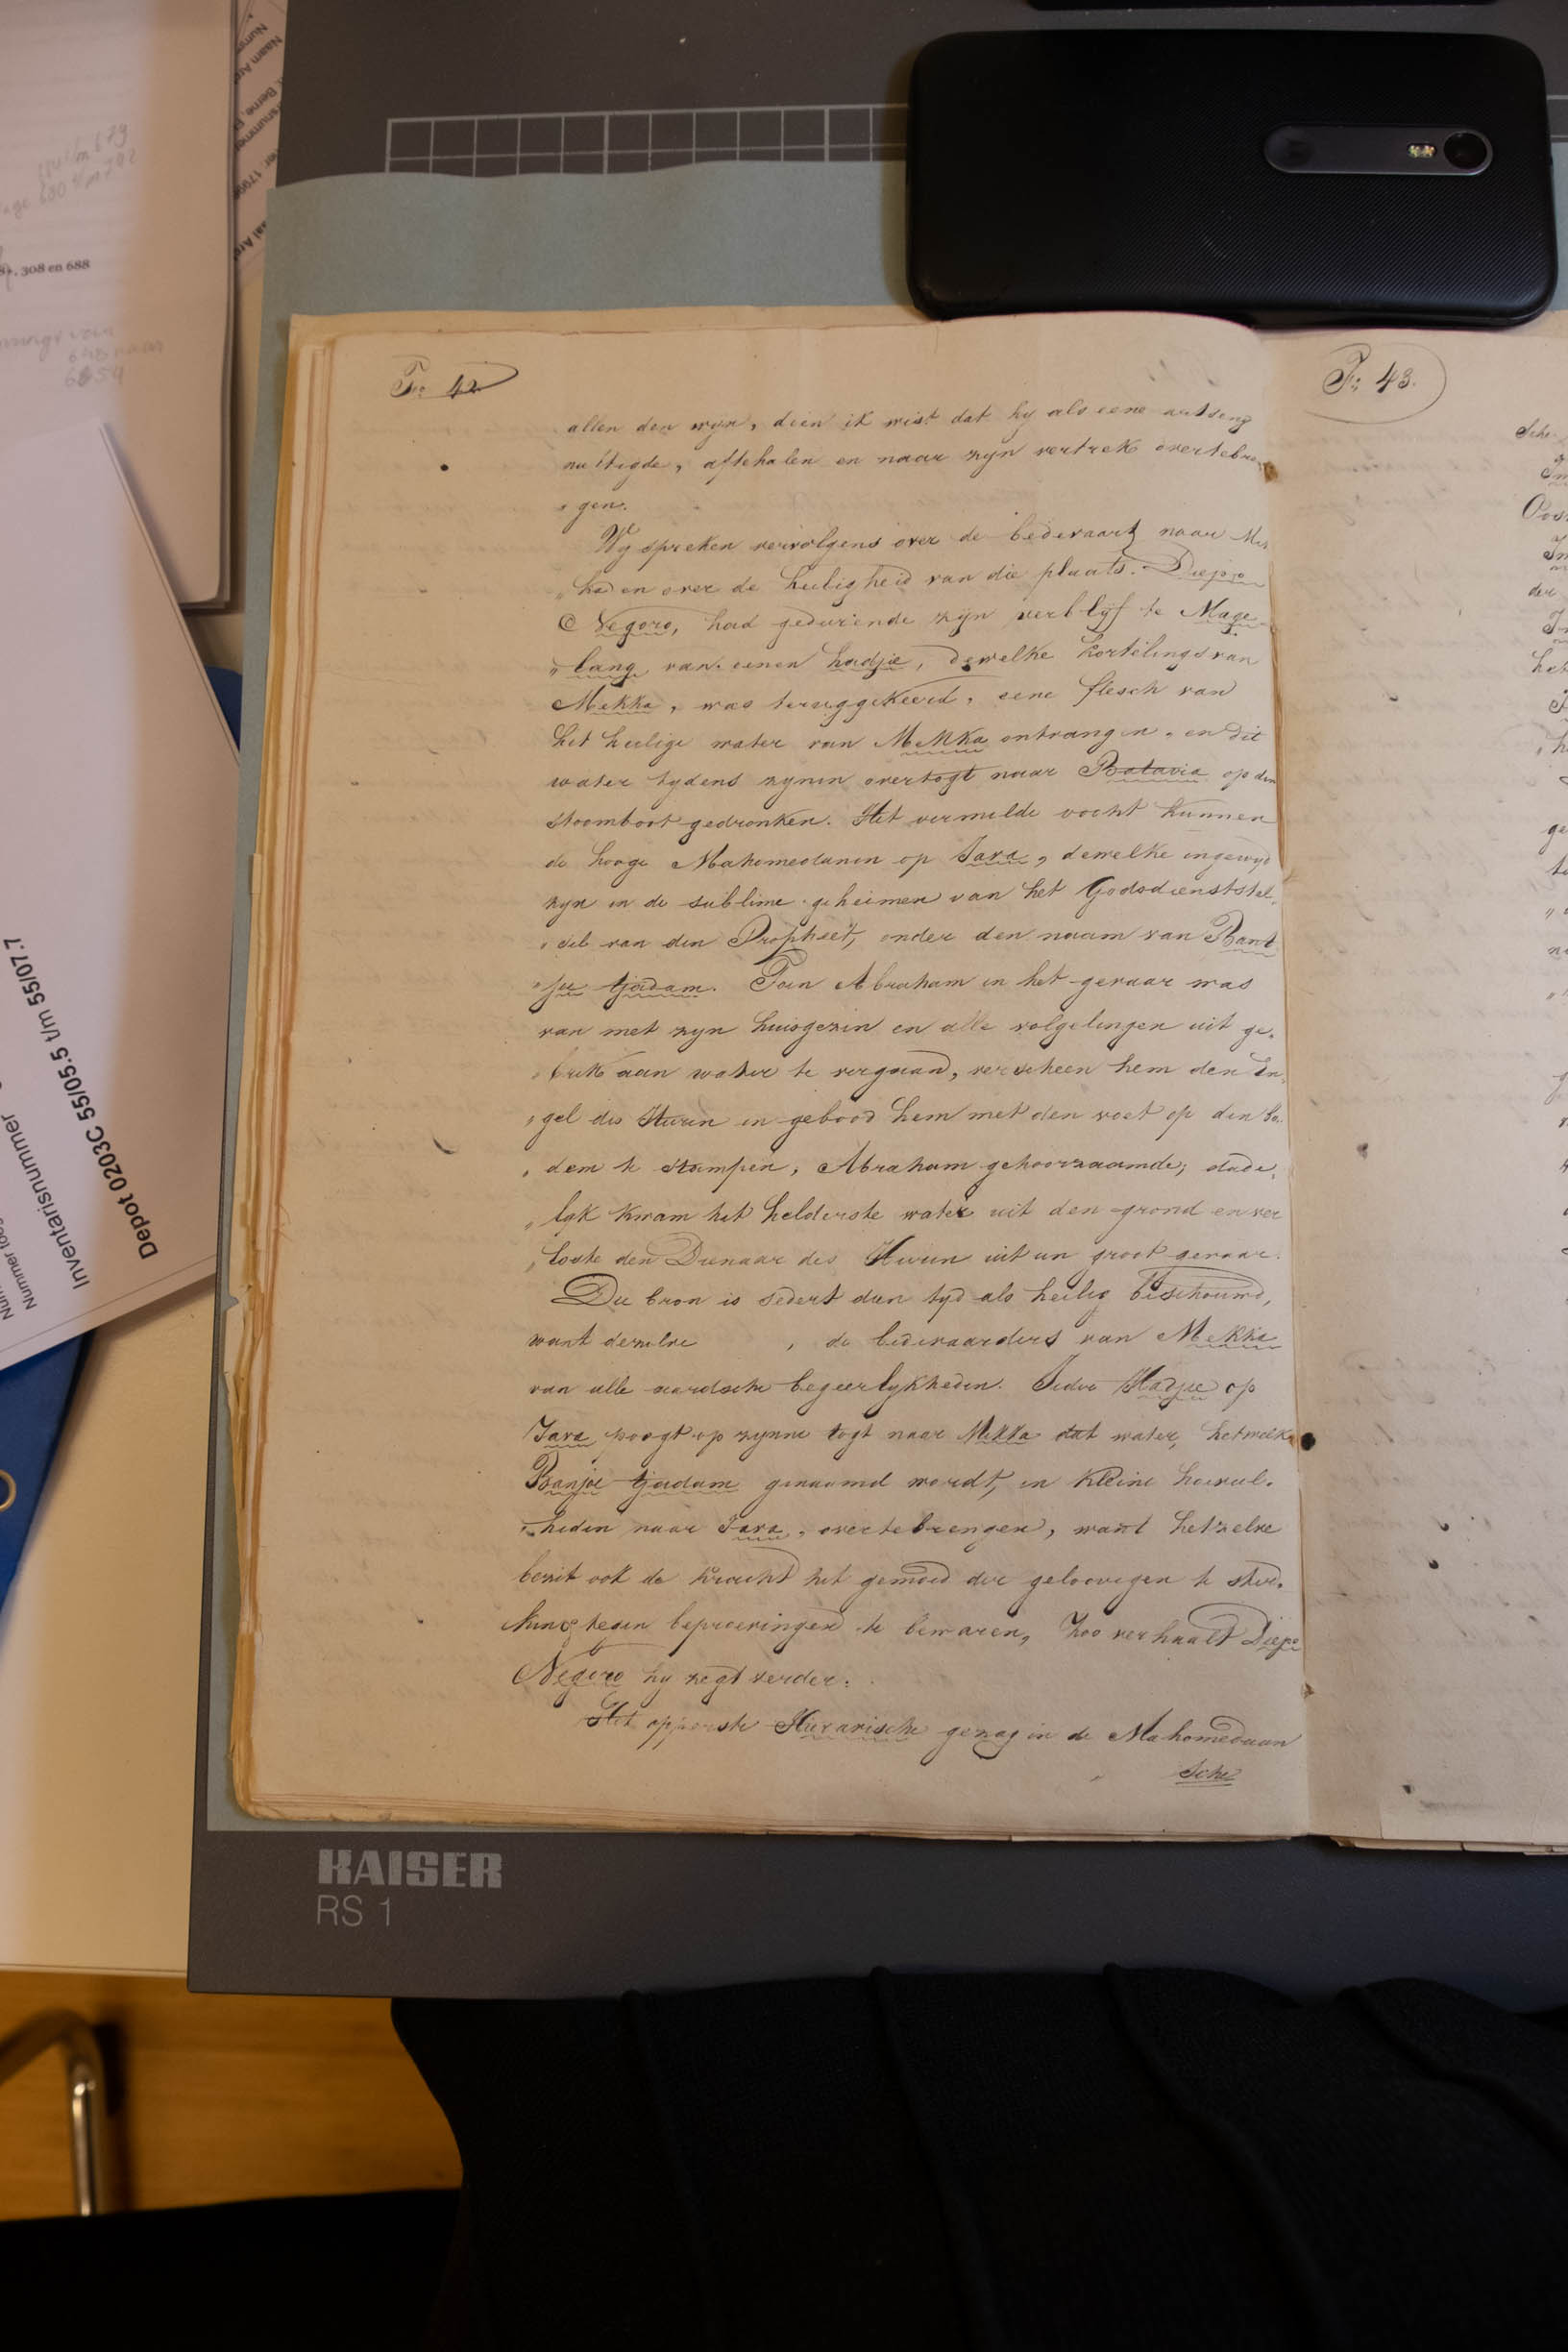 F: 42
allen den wyn, dien ik wist dat hy als eene artseny
nuttigde, aftehalen en naar zyn vertrek overtebren
„gen.
Wy spreken vervolgens over de bedevaart naar Mek
„ka en over de heiligheid van die plaats. Diepo
Negoro, had gedurende zyn verblyf te Mage
„lang van eenen hadjie, dewelke kortelings van
Mekka, was teruggekeerd, eene flesch van
het heilige water van Mekka ontvangen, en dit
water tydens zynen overtogt naar Batavia op den
stoomboot gedronken. Het vermelde vocht kunnen
de hooge Mahomedanen op Java, dewelke ingewyd
zyn in de sublime geheimen van het Godsdienststel„
„sel van den Propheet, onder den naam van Bant
„joe tjadam. Toen Abraham in het gevaar was
van met zyn huisgezin en alle volgelingen uit ge„
„brek aan water te vergaan, verscheen hem den En„
„gel des Heeren en gebood hem met den voet op den bo„
„dem te stampen, Abraham gehoorzaamde; dade„
„lyk kwam het helderste water uit den grond en ver
„loste den Dienaar des Heeren uit een groot gevaar.
Die bron is sedert dien tyd als heilig beschouwd,
want dezelve , de bedevaarders van Mekka
van alle aardsche begeerlykheden. Ieder Hadjie op
Java poogt op zynen togt naar Mekka dat water, hetwelk
Banjoe tjadam genaamd wordt, in kleine hoeveel„
„heden naar Java, overtebrengen, want hetzelve
bezit ook de kracht het gemoed der geloovigen te
tegen beproevingen te bewaren, Zoo verhaalt Diepo
Negoro hy zegt verder:
Het opperste Hierarische gezag in de Mahomedaan
sche
F: 43.
KAISER
RS 1
Depot 0203C 55/05.5 t/m 55/07.7
Inventarisnummer
308 en 688